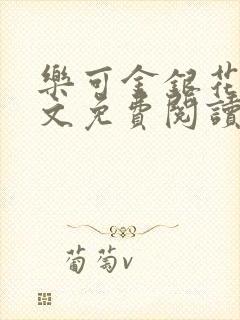 樂可金銀花
文免費閱讀
葡萄v